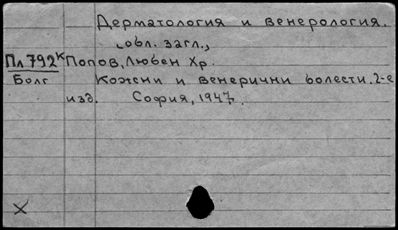 Дерматология и венерология.
(обл. загл.,
Пл 792к Попов, Любен Хр.
Болг Кожни и венерични болести. 2-е
изд. София, 1947.
X